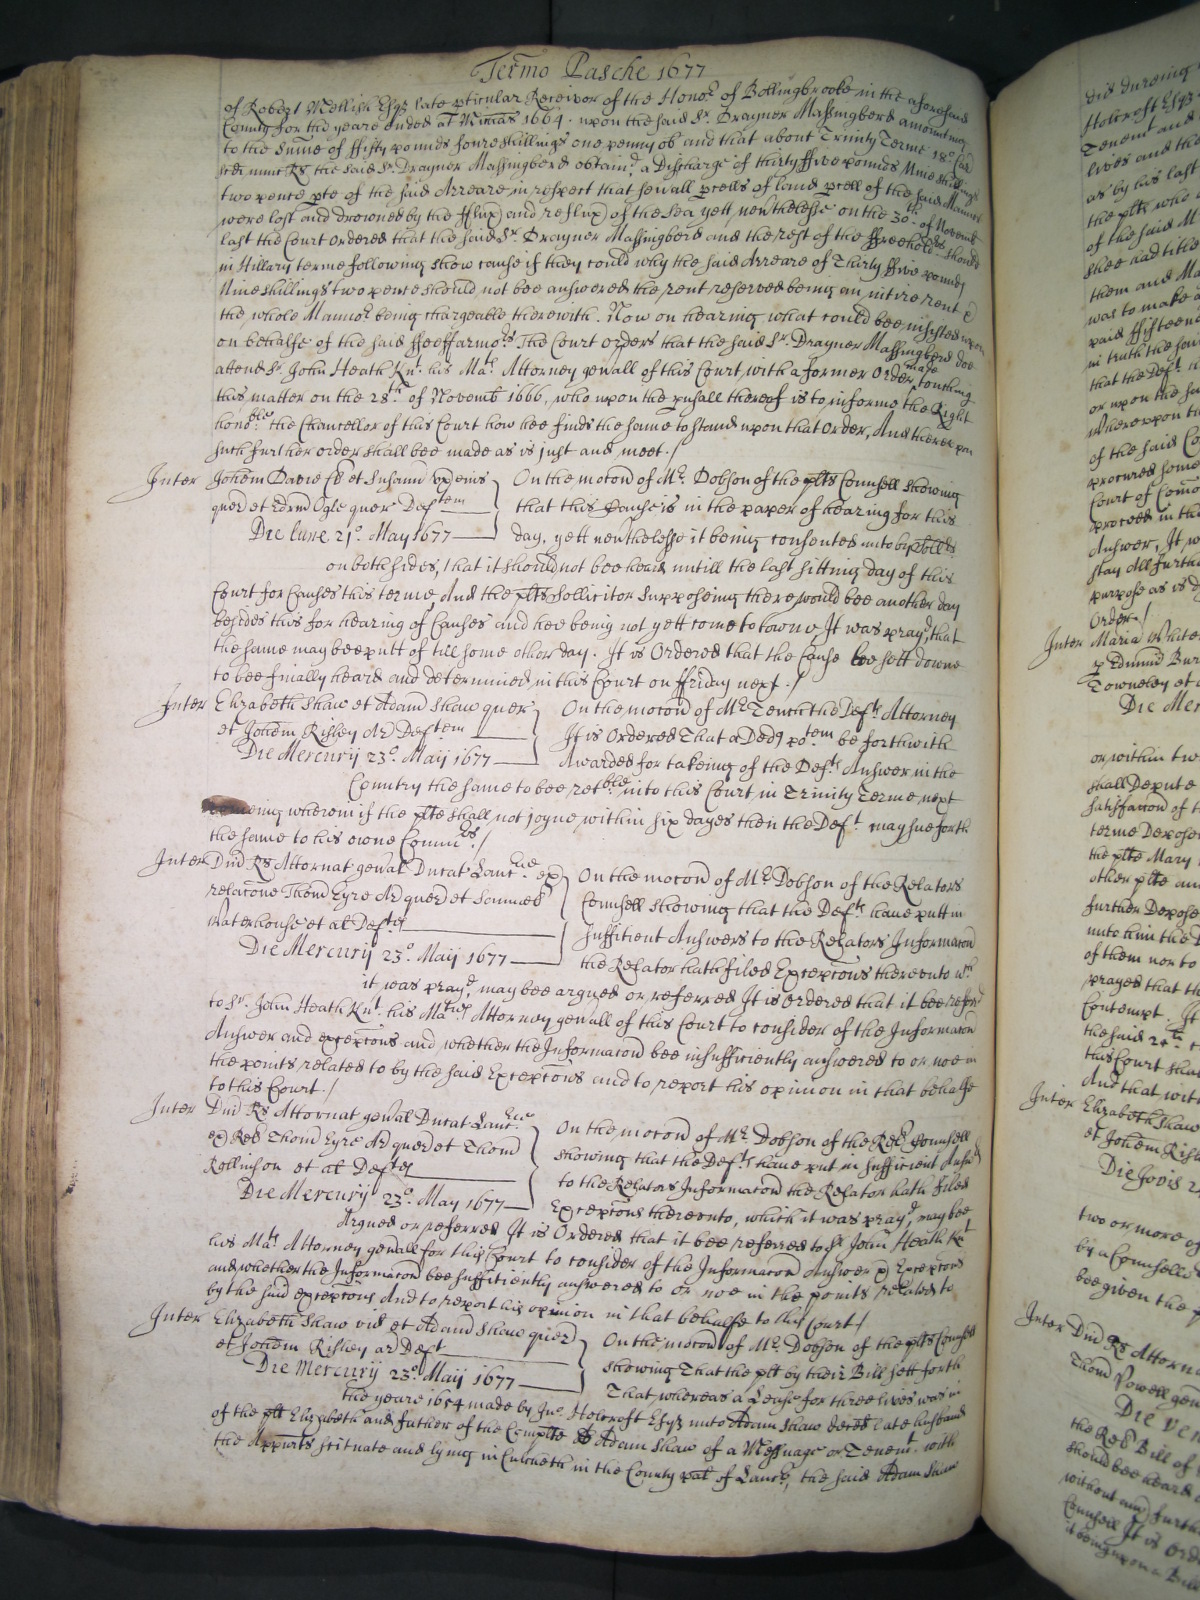 Termo Pasche 1677
of Robert Mellish Esqr late pticular Receivor of the Honor of Bollingbrooke in the aforesaid
County for the yeare ended at Micħas 1664. upon the said Sr. Drayner Massingberd amounting
to the Summe of ffifty pounds foure shillings one penny ob and that about Trinity Terme 18o
nunc Rs the said Sr Drayner Massingberd obtaind a Discharge of thirty ffive pounds Nine shillings
two pence pte of the said Arreare in respect that sevall pcells of land pcell of the said Mannor
were lost and drowned by the fflux and reflux of the Sea yett nevthelesse on the 30th of Novemb
last the Court ordered that the said Sr. Drayner Massingberd and the rest of the ffreeholdrs should
in Hillary terme following show cause if they could why the said Arreare of Thirty ffive pounds
Nine shillings two pence should not bee answered the rent reserved being an intire rent &
the whole Mannor being chargeable therewith. Now on hearing what could bee insisted upon
on behalfe of the said ffeoffarmors The Court orders that the said Sr. Drayner Massingberd doe
attend Sr. John Heath Knt. his Mats Attorney genall of this Court with a former Order made touching
this matter on the 28th of Novemb 1666, who upon the pusall thereof is to informe the Right
honoble the Chancellor of this Court how hee finds the same to stand upon that order, And thereupon
such further order shall bee made as is just and meet./
Inter Johem Davie et Susann ux eius
quer et Edrm Ogle quer Deftem
Die lune 21o. May 1677
On the motion of Mr. Dobson of the plts Counsell shewing
that this Cause is in the paper of hearing for this
day, yett nevthelesse it being consented unto by
on both sides, that it should not bee heard untill the last sitting day of this
Court for Causes this terme And the plts Sollicitor supposeing there would bee another day
besides this for hearing of Causes and hee being not yett come to towne It was prayd that
the same may bee putt of till some other day. It is Ordered that the Cause bee sett downe
to bee finally heard and determined in this Court on ffriday next./
Inter Elizabeth Shaw et Adam Shaw quer
et Johem Risley Ar Deftem
Die Mercurij 23o. Maij 1677
On the motion of Mr Tench the Defts Attorney
It is Ordered That a Ded9 potem be forthwith
Awarded for takeing of the Defts Answer in the
Country the same to bee retble into this Court in Trinity Terme next
wherein if the plts shall not joyne within six dayes then the Deft may sue forth
the same to his owne Commrs./
Inter Dnu Rs Attornat genal Ducat Lanc ex
relacone Thom Eyre Ar quer et Samuel
Waterhouse et al Deftes
Die Mercurij 23o. Maij 1677
On the motion of Mr. Dobson of the Relators
Counsell shewing that the Defts have putt in
suffitient Answers to the Relators Informacon
the Relator hath filed Excepcons thereunto wch
it was prayd may bee argued or referred It is ordered that it bee referd
to Sr. John Heath Knt. his Maties Attorney genall of this Court to consider of the Informacon
Answer and excepcons and whether the Informacon bee insufficiently answered to or noe in
the points related to by the said Excepcons and to report his opinion in that behalfe
to this Court./
Inter Dnu Rs Attornat genal Ducat Lanc
ex Rel Thom Eyre Ar quer et Thom
Rollinson et al Deftes
Die Mercurij 23o. May 1677
On the motion of Mr. Dobson of the Relr Counsell
shewing that the Defts have put in sufficient Answ
to the Relators Informacon the Relator hath filed
Excepcons thereunto, which it was prayd may bee
Argued or referred It is Ordered that it bee referred to Sr John Heath Knt
his Mats Attorney genall for this Court to consider of the Informacon Answer & Excepcons
and whether the Informacon bee sufficiently answered to or noe in the points related to
by the said excepcons And to report his opinion in that behalfe to this Court/
Inter Elizabeth Shaw vid et Adam Shaw quer
et Johem Risley ar Deft
Die Mercurij 23o. Maij 1677
On the motion of Mr. Dobson of the plts Counsell
shewing That the plt by their Bill sett forth
That whereas a Lease for three lives was in
the yeare 1654 made by Jno. Holcroft Esqr unto Adam Shaw deced late husband
of the plt Elizabeth and father of the Complte Adam Shaw of a Messuage or Tenemt with
the Appurts scituate and lying in Culcheth in the County pal of Lancr, the said Adam Shaw
did dureing
Holcroft Esqr
Tenemt and
lives and the
as by his last
the plts who
of the said M
shee had title
them and Ma
was to make a
paid ffifteene
in truth the said
that the Deft
or upon the
Whereupon
of the said Co
procured some
Court of Comon
proceed in the
Answer, It w
stay All furth
purpose as is d
Order./
Inter Maria White
p Edmund Bur
Towneley et
Die Mer
or within tw
shall Depute
satisfaccon of t
terme Depose
the plte Mary
other plte and
further Depose
unto him the D
of them nor to
prayed that th
Contempt. It
the said 24th
this Court shal
And that with
Inter Elizabeth Shaw
et Johem Risl
Die Jovis 2
two or more of
by a Counsellor
bee given the p
Inter Dnu Rs Attorna
Thom Powell gen
Die Ven
the Rel Bill of
should bee heard
without any furth
Counsell It is ord
it being upon a Bill